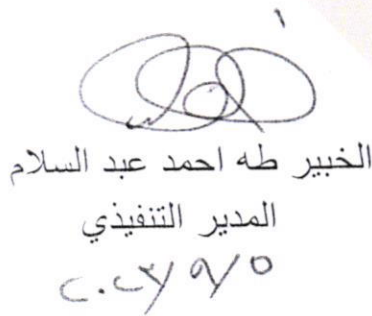 الخبير طه احمد عبد السلام
المدير التنفيذي
٢٠٢٣/٩/٥